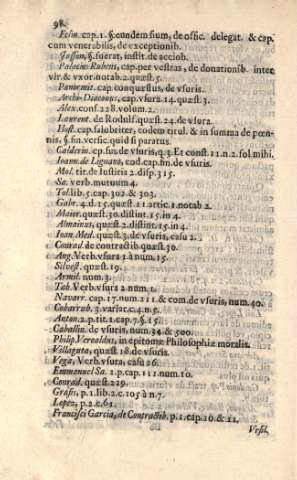 98.
Felin. cap. 1. §. eundem sium, de offic. delegat. & cap.
cum venerabilis, de exceptionib.
Jasson, §. fuerat, instit. de acciob.
Palacius Rubeus, cap. per vestras, de donationib. inter
vir. & vxor. notab. 2. quæst. 5.
Panormit. cap. conquæstus, de vsuris.
Archi-Diaconus, cap. vsura. 14. quæst. 3.
Alex. conf. 228. volum. 2.
Laurent. de Rodulf. quæst. 24. de vsura.
Host. cap. salubriter, eodem titul. & in summa de pœn-
nis, §. sin. versic. quid si paratus.
Calderin. cap. sin. de vsuris, q. 3. Et const. 11. n. 2. fol. mihi.
Ioann. de Lignano, eod. cap. sin. de vsuris.
Mol. tit. de Iustitia 2. disp. 315.
Sa. verb. mutuum 4.
Tol. lib. 5. cap. 302 & 303.
Gabr. 4. d. 15. quæst. 11. artic. 1. notab 2.
Maior. quæst. 30. distinct. 15. in 4.
Almainus, quæst. 2. distinct. 15. in 4.
Ioan Med. quæst. 3. de vsuris, casu 2.
Conrad de contractib. quæst. 30.
Ang. Verb. vsura 1. à num. 15.
Silvest. quæst. 19.
Armil. num. 3.
Tab. Verb. vsura 2. num. 1.
Navarr. cap. 17. num. 211. & com. de vsuris, num. 40.
Cobarrub. 3. variar. c. 4. n. 5.
Anton. 2. p. tit. 1. cap. 7. §. 15.
Caballin. de vsuris, num. 34. & 500.
Philip. Veroaldus, in epitome Philosophiæ moralis.
Villaguta, quæst. 18. de vsuris.
Vega, Verb. vsura, casu 26.
Emmanuel Sa. 1. p. cap. 111. num. 10.
Conrad. quæst. 229.
Grafis, p. 1. lib. 2. c. 105 à n. 7.
Lopez, p. 2. c. 62.
Francisci Garcia, de Contractib. p. 1. cap. 10. & 11.
Vesil.